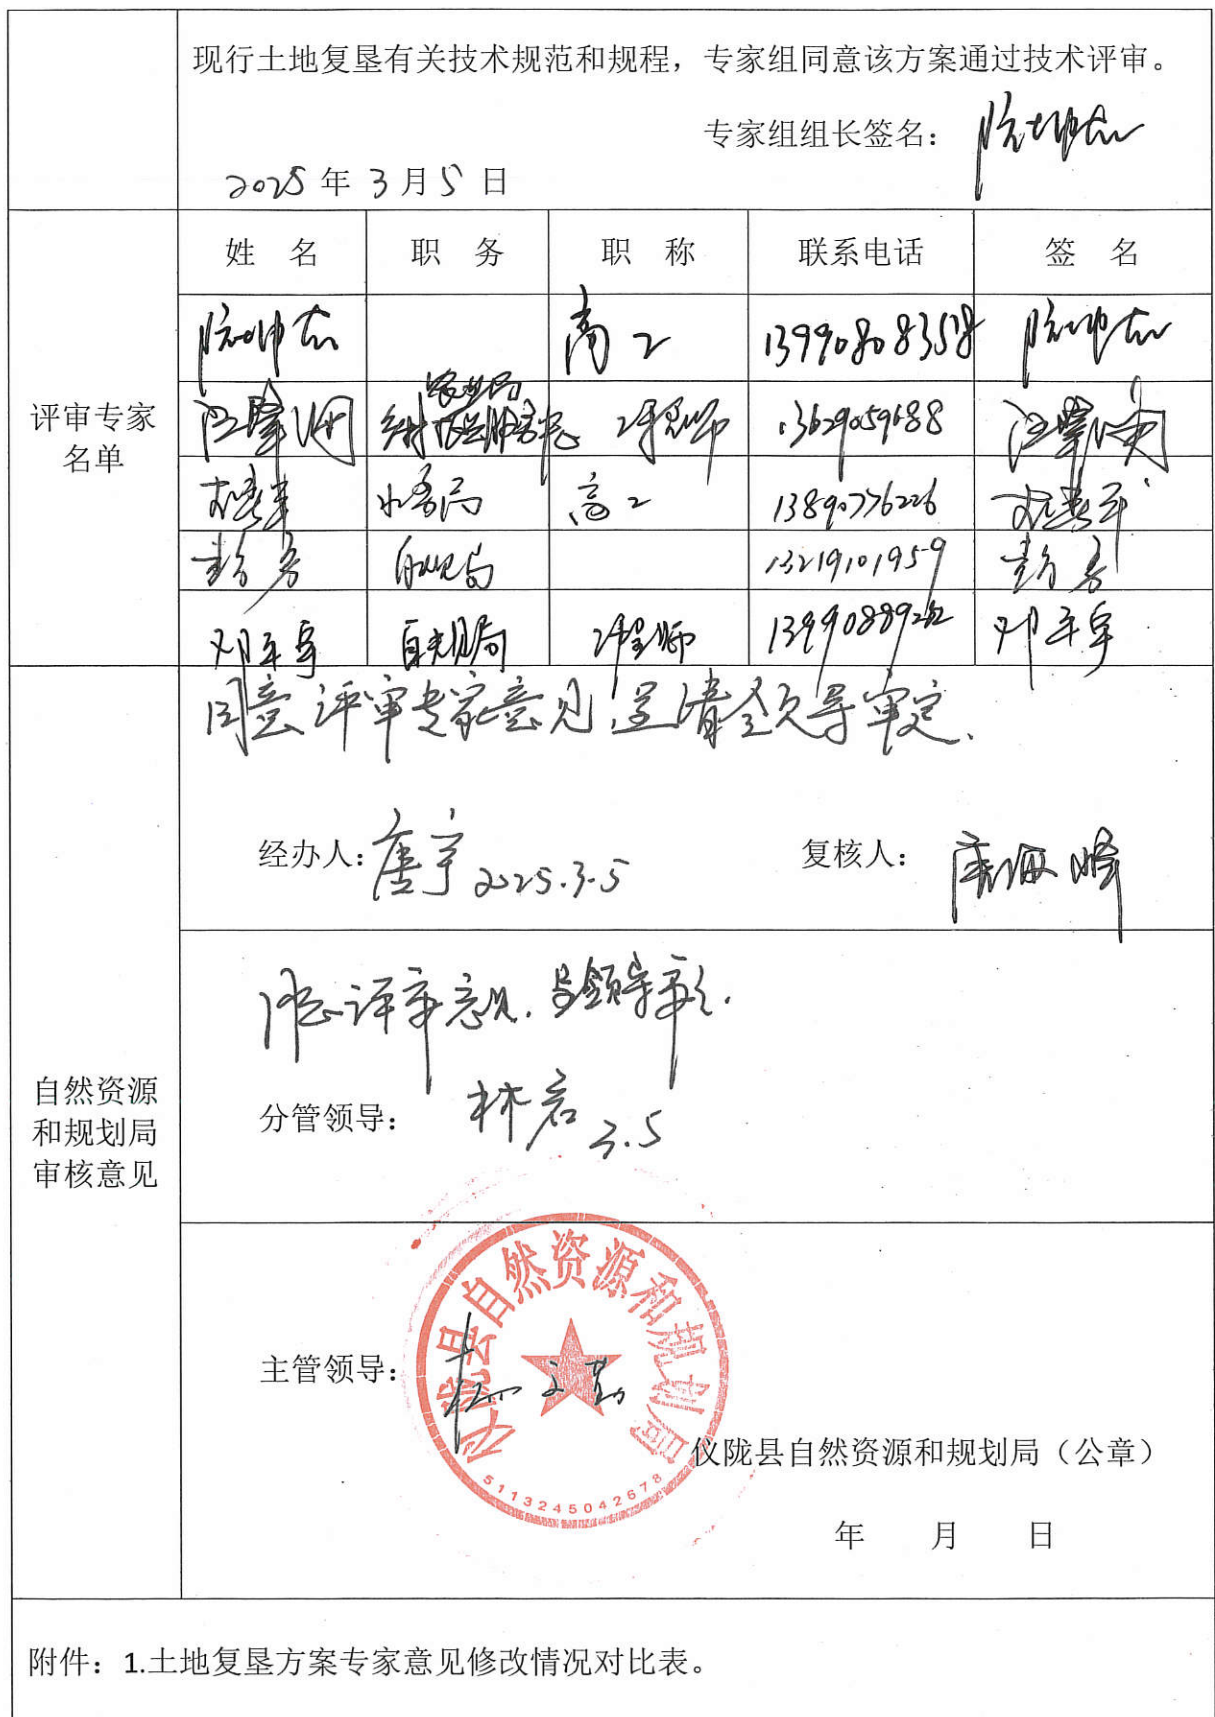 现行土地复垦有关技术规范和规程，专家组同意该方案通过技术评审。
专家组组长签名：
2025年3月5日
评审专家名单
姓 名 职 务 职 称 联系电话 签 名
高工 13990808358
工程师 13629059688
水务局 高工 13890776226
自规局 13219101959
邓平安 自然规局 工程师 邓平安
自然资源和规划局审核意见
同意评审专家意见，呈请领导审定。
经办人：唐宇 2025.3.5 复核人：
同意评审意见，呈领导审定。
分管领导：林君 3.5
主管领导：
仪陇县自然资源和规划局
5113245042678
仪陇县自然资源和规划局（公章）
年 月 日
附件：1.土地复垦方案专家意见修改情况对比表。